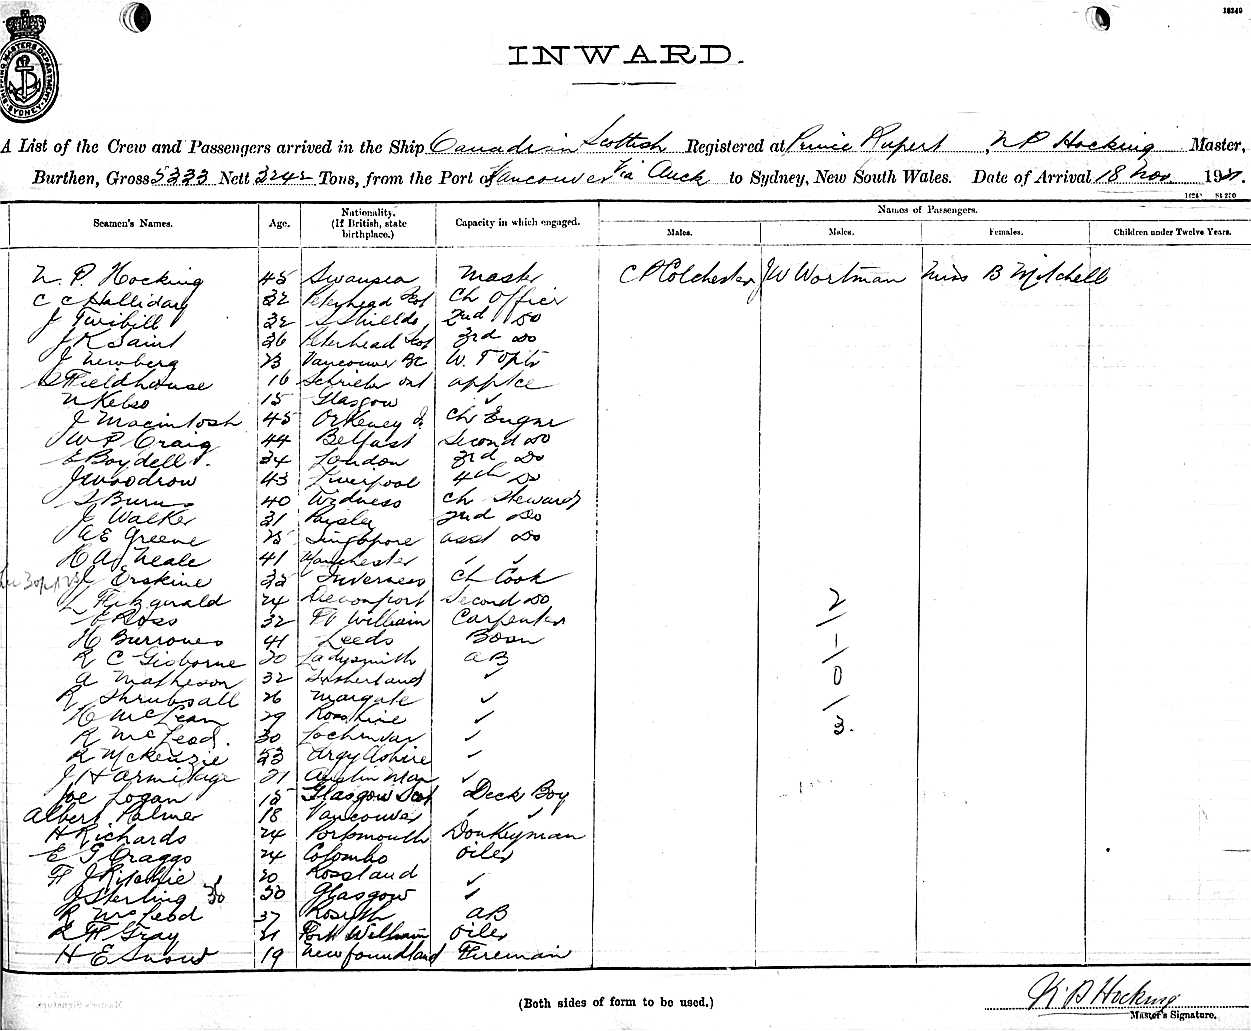 16240
SHIPPING MASTERS DEPARTMENT
SYDNEY
INWARD.
A List of the Crew and Passengers arrived in the Ship Canadian Scottish Registered at Prince Rupert, N P Hocking Master,
Burthen, Gross 5333 Nett 3242 Tons, from the Port of Vancouver Via Auck to Sydney, New South Wales. Date of Arrival 18 Nov 192
Names of Passengers.
Seamen's Names. Age. Nationality. (If British, state birthplace.) Capacity in which engaged. Males. Males. Females. Children under Twelve Years.
N. P. Hocking 45 Swansea Master C P Colchester J W Wortman Miss B Mitchell
C C Halliday 32 Ch Officer
J Twibill 32 S Shields 2nd Do
J K Saint 26 Peterhead Scot 3rd Do
J Newberg 23 Vancouver BC W. T Optr
Fieldhouse 16 Schrieber Ont appice
N Kelso 15 Glasgow ✓
J Macintosh 45 Orkeney I. Ch Engnr
W P Craig 44 Belfast Second Do
E Boydell. 34 London 3rd Do
J Woodrow 43 Liverpool 4th Do
Burns 40 Widness Ch Steward
J Walker 31 Paisley 2nd Do
A E Greene 25 Singapore asst Do
H A Neale 41 Manchester ✓ ✓
J Erskine 32 Inverness Ch Cook
L Fitzgerald 24 Devonport Second Do 2
E Ross 32 Ft William Carpenter
H Burrows 41 Leeds Bosn
R C Gisborne 30 Ladysmith AB
A Matheson 32 Sutherland ✓ 0
R Shrubsall 26 Margate ✓
H McLean 29 Rosshire ✓ 3.
R McLeod. 30 Lochinvar ✓
R McKenzie 23 Argylshire ✓
J H Armitage 21 Austin Man ✓
Joe Logan 15 Glasgow Scot Deck Boy
Albert Palmer 18 Vancouver ✓ ✓
H Richards 24 Portsmouth Donkeyman
E G Craggs 24 Colombo Oiler
F J Ritchie 20 Rossland ✓
J Sterling 30 Glasgow ✓
R McLeod 37 Rosyth AB
R H Gray 21 Fort William Oiler
H E Snow 19 Newfoundland Fireman
(Both sides of form to be used.)
N. P Hocking
Master's Signature.